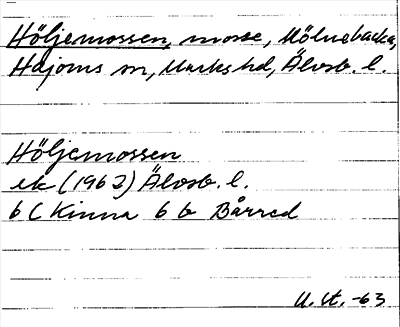 Höljemossen, mosse, Mölnebacka,
Hajoms sn, Marks hd, Älvsb. l.
Höljemossen
ek (1962) Älvsb. l.
6 C Kinna 6 b Bårred
U. St. -63